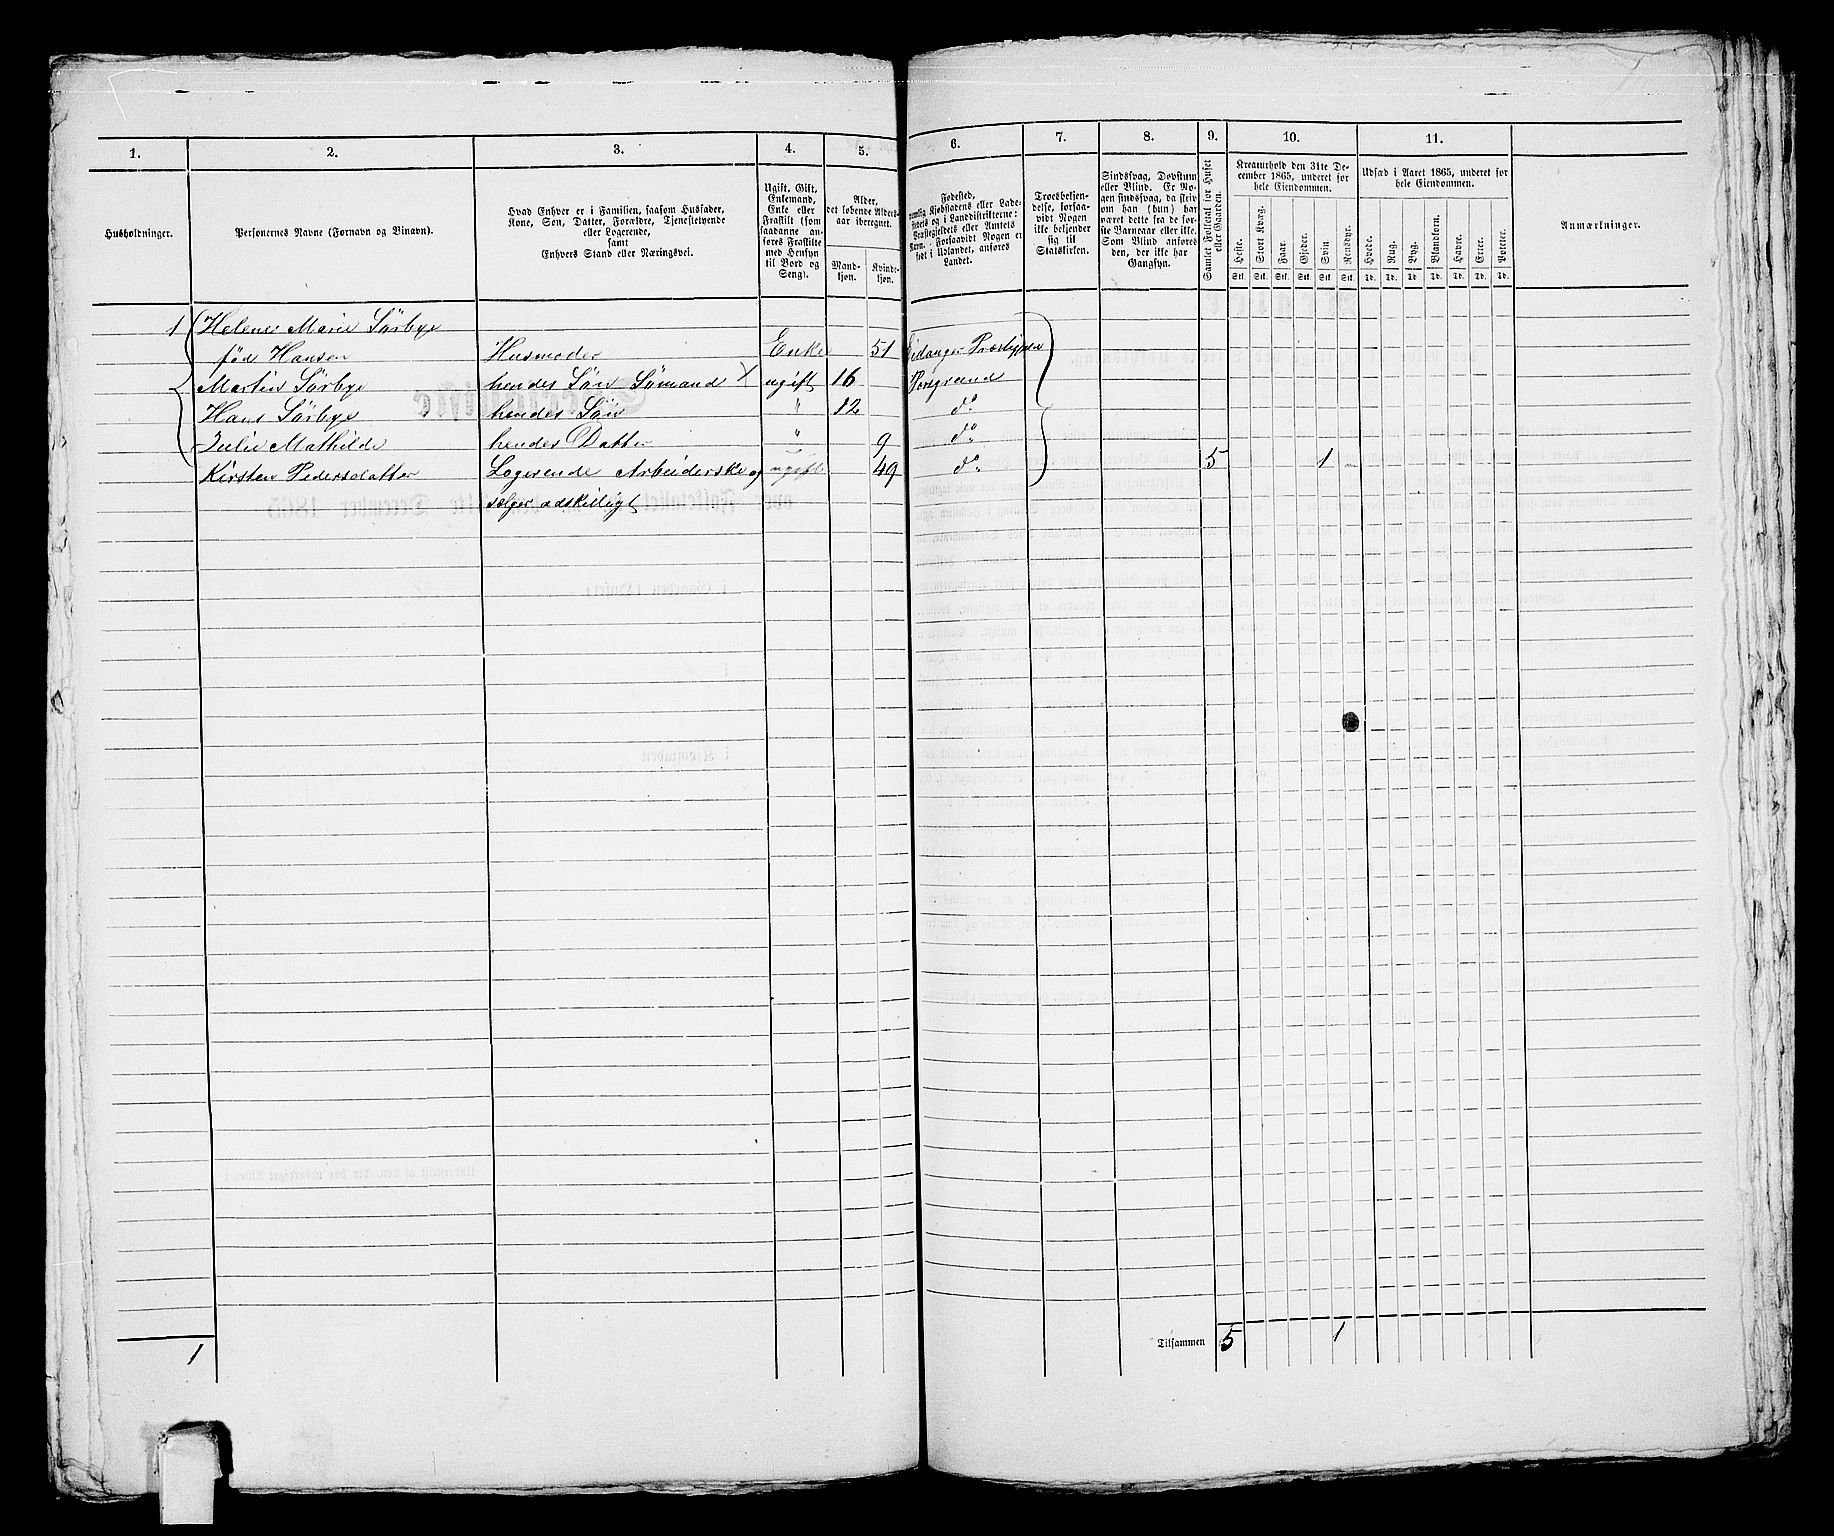 1.
2.
3.
4.
5.
6.
7.
8.
9.
10.
11.
Husholdninger.
Personernes Navne (Fornavn og Binavn).
Hvad Enhver er i Familien, saasom Husfader, Kone, Søn, Datter, Forældre, Tjenestetyende eller Logerende, samt Enhvers Stand eller Næringsvei.
Ugift, Gift, Enkemand, Enke eller Fraskilt (som saadanne anføres Fraskilte med Hensyn til Bord og Seng).
Alder, det løbende Aldersaar iberegnet.
Mandkjøn.
Kvindekjøn.
Fødested, nemlig Kjøbstadens eller Ladestedets og i Landdistrikterne: Præstegjeldets eller Amtets Navn. Forsaavidt Nogen er født i Udlandet, anføres Landet.
Troesbekjendelse, forsaavidt Nogen ikke bekjender sig til Statskirken.
Sindssvag, Døvstum eller Blind. Er Nogen sindssvag, da skrives om han (hun) har været dette fra de første Barneaar eller ikke. Som Blind anføres den, der ikke har Gangsyn.
Samlet Folketal for Huset eller Gaarden.
Kreaturhold den 31te December 1865, underet for hele Eiendommen.
Heste. Stort Kvæg. Faar. Gjeder. Sviin. Rensdyr.
Stk. Stk. Stk. Stk. Stk. Stk.
Udsæd i Aaret 1865, underet for hele Eiendommen.
Hvede. Rug. Byg. Blandkorn. Havre. Erter. Poteter.
Td. Td. Td. Td. Td. Td. Td.
Anmærkninger.
1 Helene Marie Sörbye
föd Hansen Husmoder Enke 51 Eidanger
Martin Sörbye hendes Sön Sömand X ugift 16 Porsgrund
Hans Sörbye hendes Sön " 12 do
Julie Mathilde hendes Datter " 9 do
Kirsten Pedersdatter Logerende Arbeiderske og ugift 49 do 5 1
sælger adskilligt
1
Tilsammen 5 1